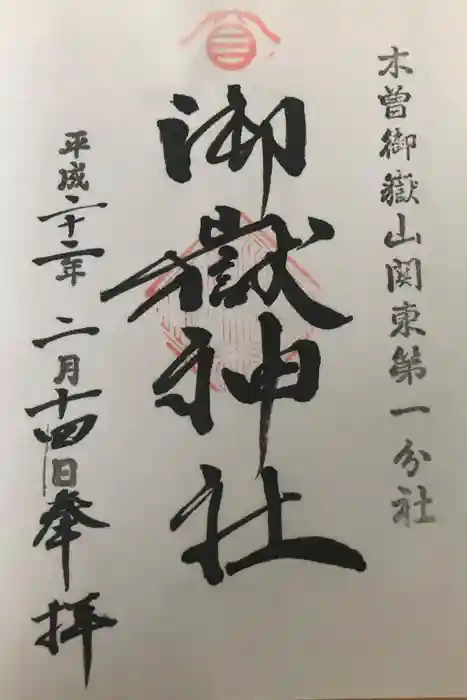 木曽御嶽山関東第一分社
御嶽神社
平成二十二年二月十四日奉拝